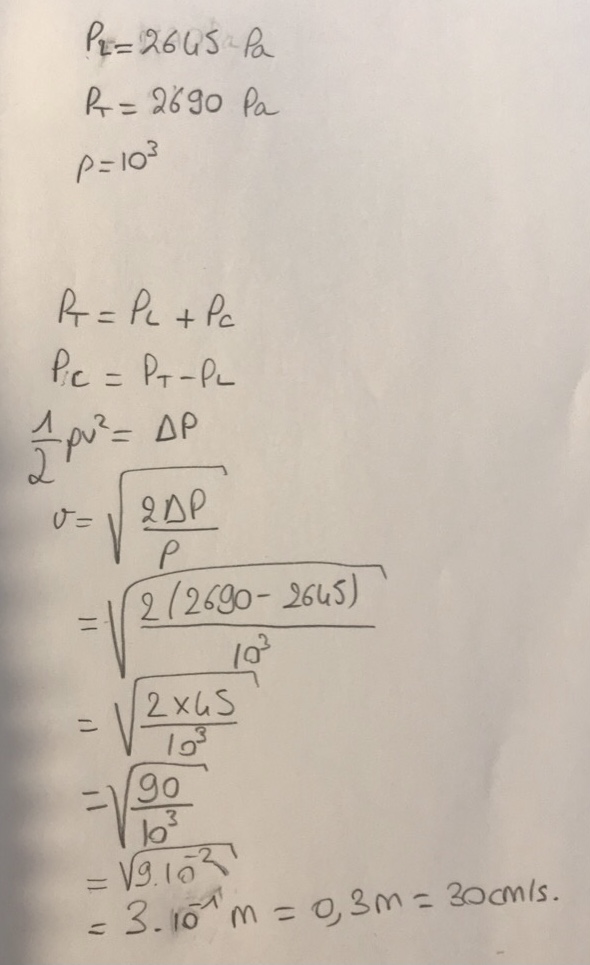 P_L = 2645 Pa
P_T = 2690 Pa
ρ = 10³
P_T = P_L + P_C
P_C = P_T - P_L
1/2 ρv² = ΔP
v = √(2ΔP/ρ)
= √(2(2690 - 2645)/10³)
= √(2×45/10³)
= √(90/10³)
= √9.10⁻²
= 3.10⁻¹ m = 0,3m = 30cm/s.